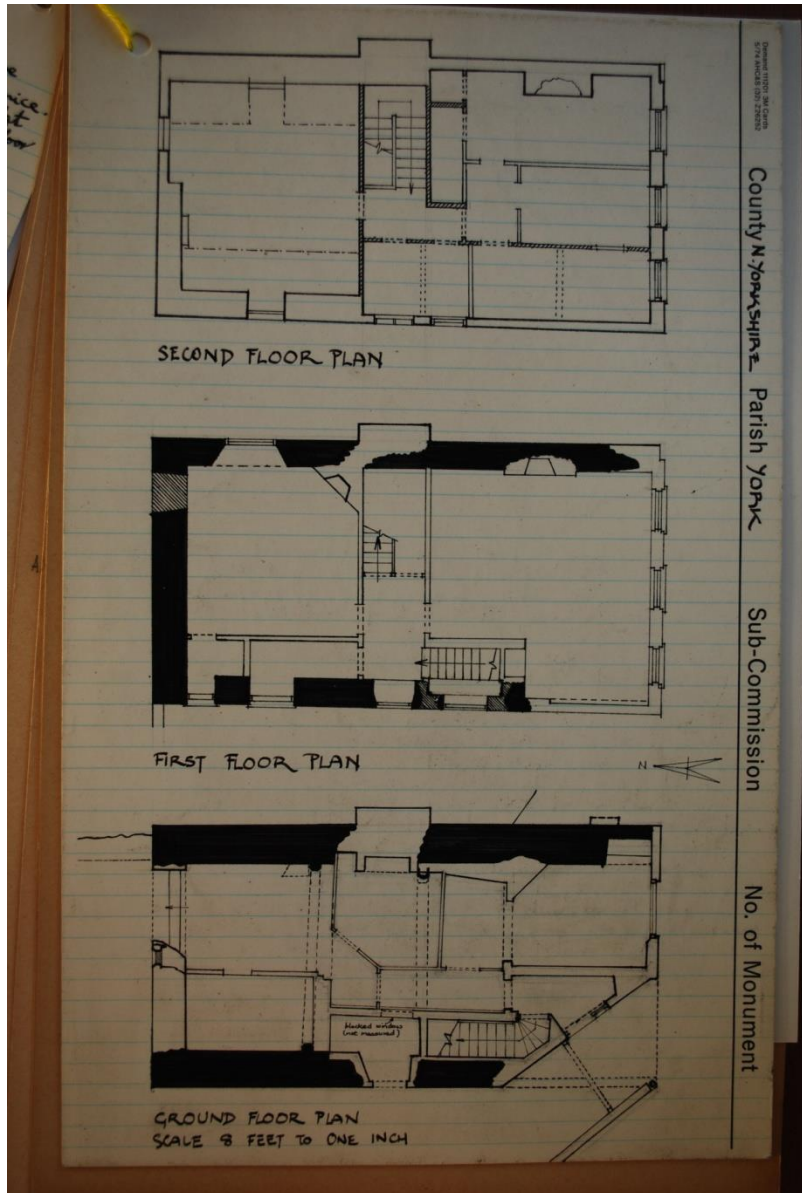 ice.
SECOND FLOOR PLAN
FIRST FLOOR PLAN
N
blocked windows
(not measured)
GROUND FLOOR PLAN
SCALE 8 FEET TO ONE INCH
County N. YORKSHIRE Parish YORK Sub-Commission No. of Monument